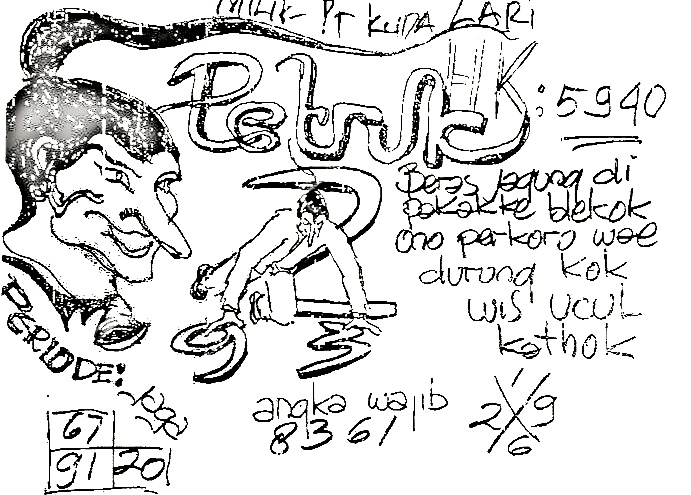 MILIK PT KUDA LARI
Petruk HK : 5940
Beras jagung di
pakakke blekok
ono perkoro wae
durung kok
wis ucul
kathok
PERIODE:
2
9 3
angka wajib
8361
1
2 X 9
6
67
91 20